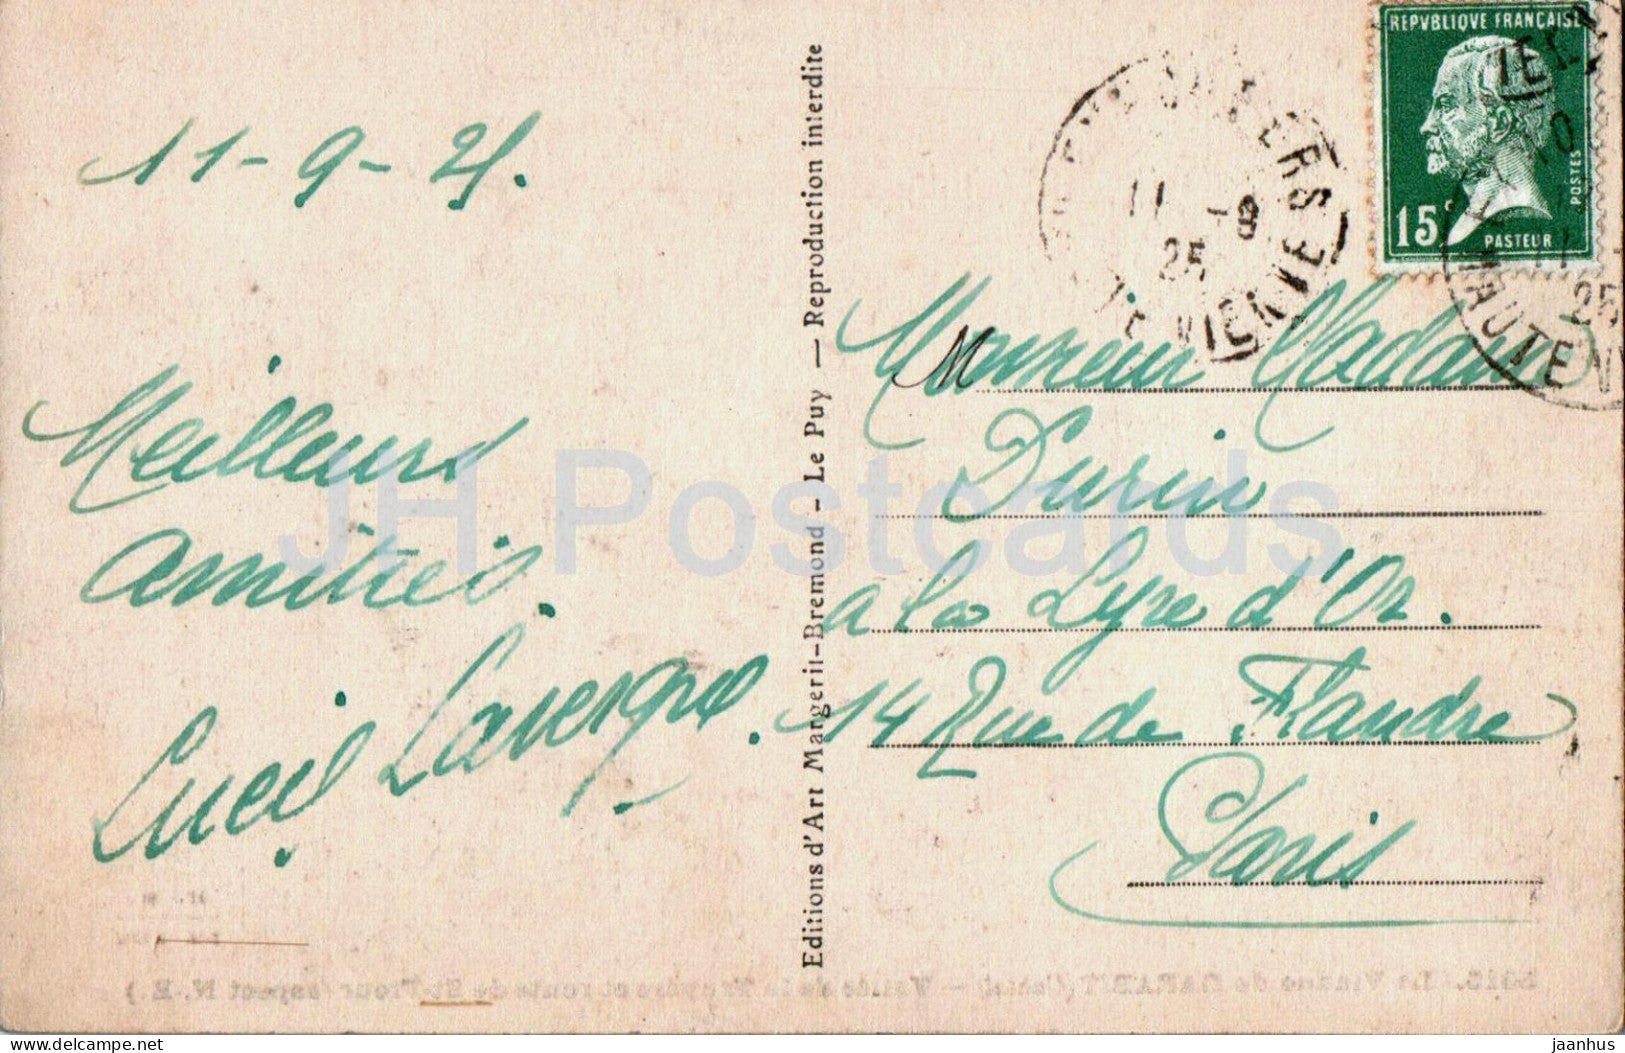 11-9-25.
Meilleurs
amitiés.
Lucil Lavergne.
Editions d'Art Margerit-Bremond - Le Puy — Reproduction interdite
REPVBLIQVE FRANÇAISE
15c
POSTES
PASTEUR
11 -9
25
VIENNE
25
HAUTE V
Monsieur Madame
Durin
a la Lyre d'Or.
14 Rue de Flandre
Paris
JH Postcards
Le Viaduc de GARABIT (Cantal) — Vallée de la Truyère et route de St-Flour (aspect N. E.)
delcampe.net
jaanhus